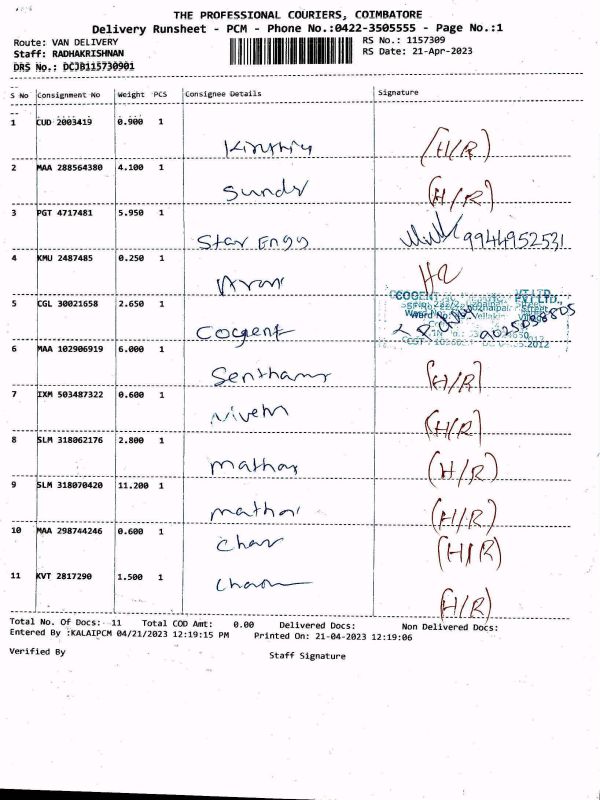 THE PROFESSIONAL COURIERS, COIMBATORE
Delivery Runsheet - PCM - Phone No.:0422-3505555 - Page No.:1
Route: VAN DELIVERY RS No.: 1157309
Staff: RADHAKRISHNAN RS Date: 21-Apr-2023
DRS No.: DCJB115730901
S No Consignment No Weight PCS Consignee Details Signature
1 CUD 2003419 0.900 1
(H/R)
2 MAA 288564380 4.100 1
(H/R)
3 PGT 4717481 5.950 1
Star Engg 9944952531
4 KMU 2487485 0.250 1
5 CGL 30021658 2.650 1
Cogent 9025038805
6 MAA 102906919 6.000 1
(H/R)
7 IXM 503487322 0.600 1
(H/R)
8 SLM 318062176 2.800 1
(H/R)
9 SLM 318070420 11.200 1
(H/R)
10 MAA 298744246 0.600 1
(H/R)
11 KVT 2817290 1.500 1
(H/R)
Total No. Of Docs: 11 Total COD Amt: 0.00 Delivered Docs: Non Delivered Docs:
Entered By :KALAIPCM 04/21/2023 12:19:15 PM Printed On: 21-04-2023 12:19:06
Verified By Staff Signature